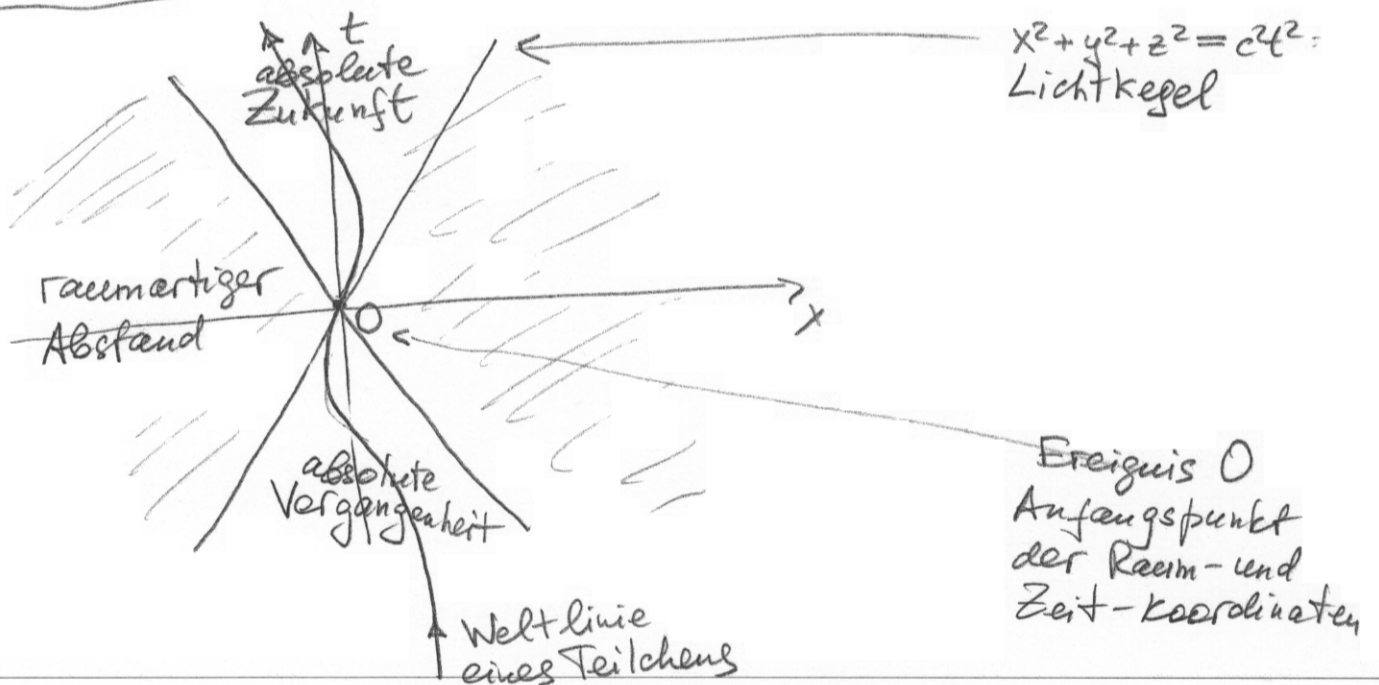 t
absolute
Zukunft
x² + y² + z² = c²t² :
Lichtkegel
raumartiger
Abstand
O
x
absolute
Vergangenheit
Ereignis O
Anfangspunkt
der Raum- und
Zeit-Koordinaten
Weltlinie
eines Teilchens